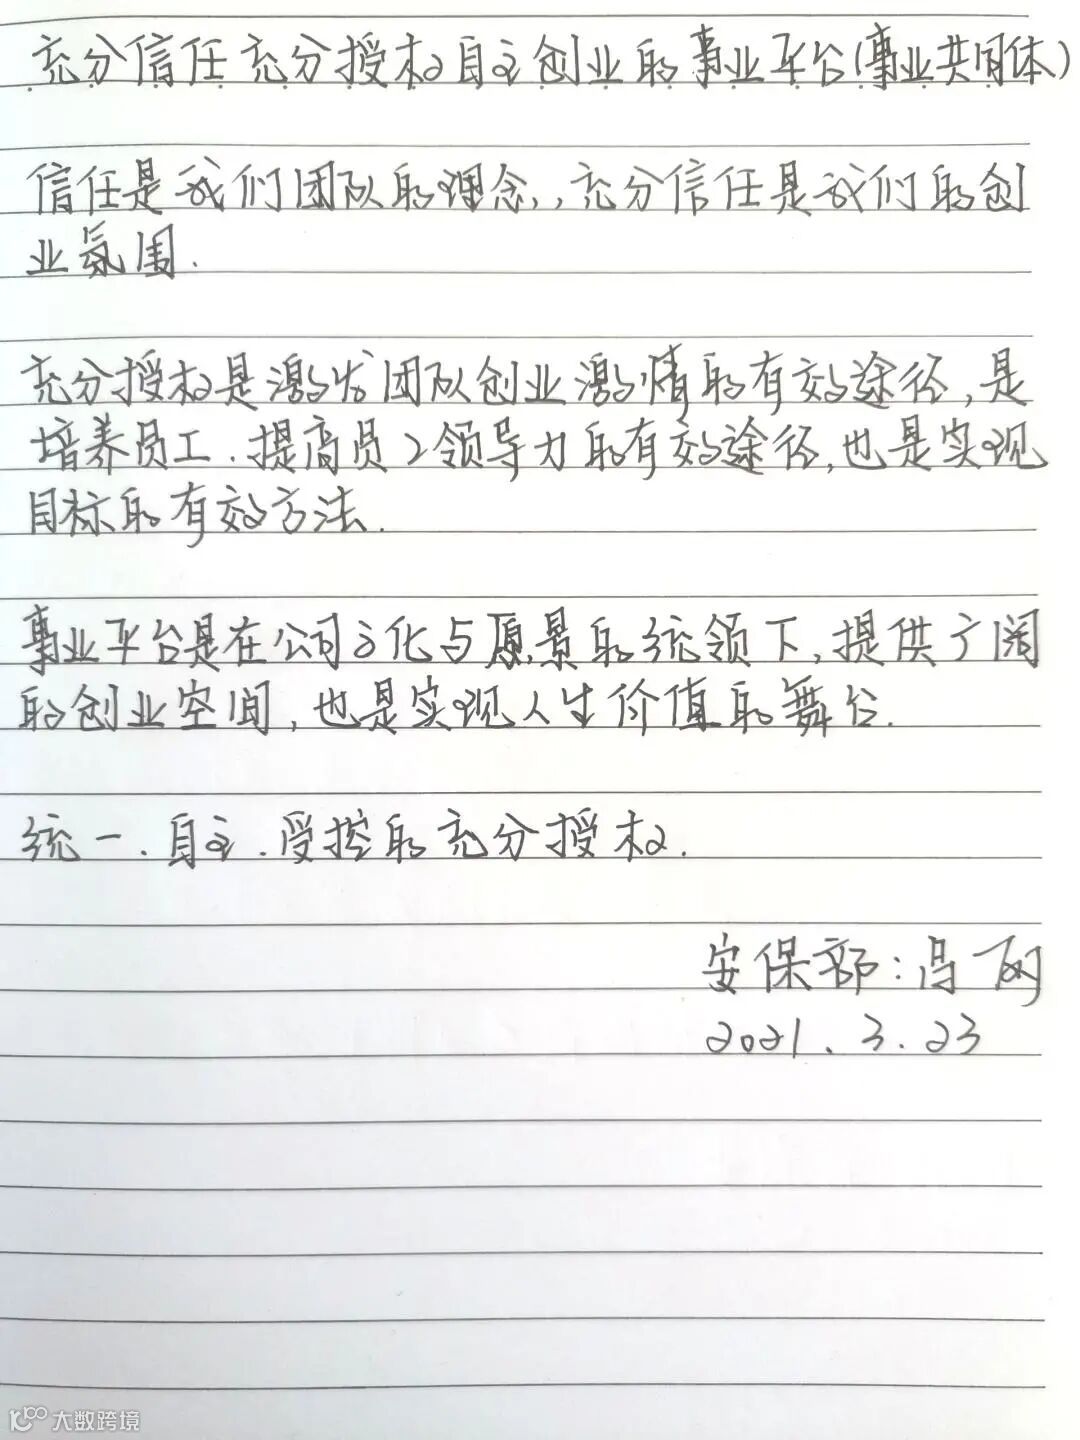 充分信任充分授权自主创业的事业平台(事业共同体)
信任是我们团队的理念,,充分信任是我们的创
业氛围.
充分授权是激发团队创业激情的有效途径,是
培养员工.提高员工领导力的有效途径,也是实现
目标的有效方法.
事业平台是在公司文化与愿景的统领下,提供广阔
的创业空间,也是实现人生价值的舞台.
统一.自主.受控的充分授权.
安保部:冯
2021.3.23
大数跨境